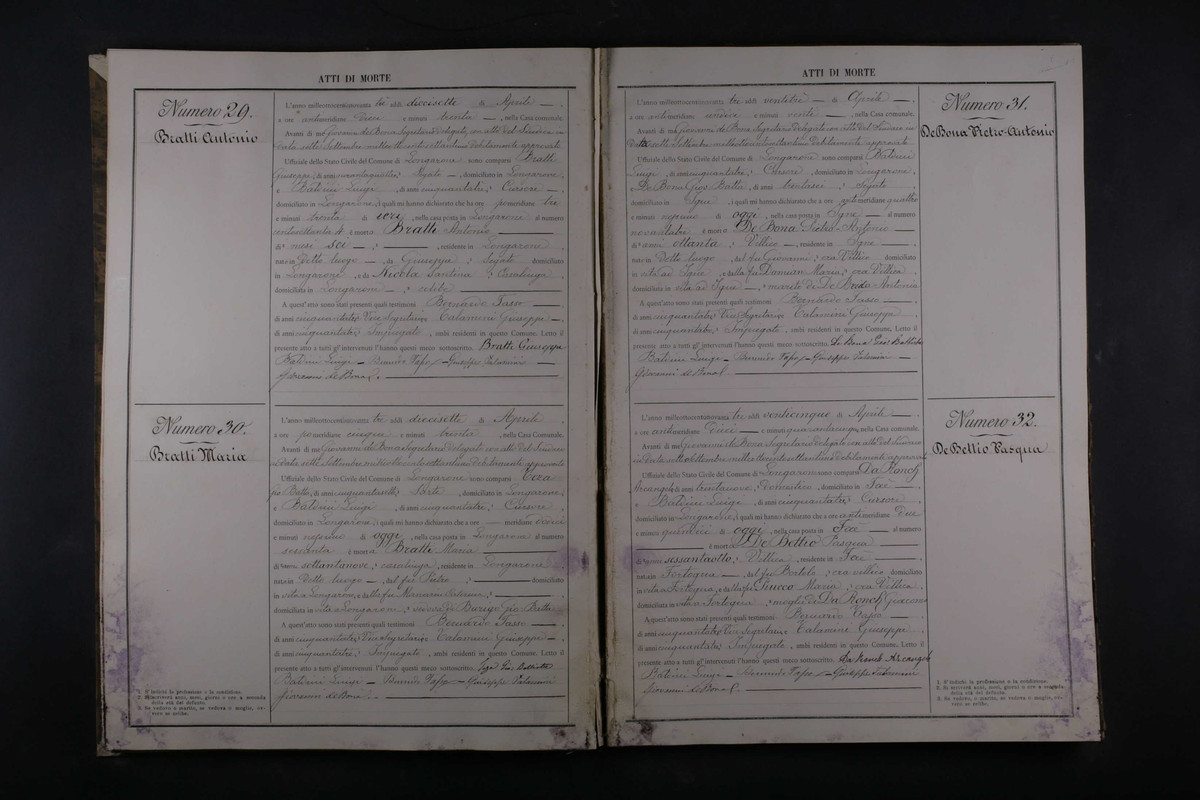 ATTI DI MORTE
Numero 29.
Bratti Antonio
L'anno milleottocentonovanta tre addì diecisette di Aprile
a ore antimeridiane dieci e minuti trenta, nella Casa Comunale.
Avanti di me Giovanni De Bona Segretario delegato con atto del Sindaco in
data sette Settembre milleottocento ottantuno debitamente approvato
Uffiziale dello Stato Civile del Comune di Longarone, sono comparsi Bratti
Giuseppe, di anni, Segato, domiciliato in Longarone,
e Batoini Luigi, di anni cinquantatre, Cursore,
domiciliato in Longarone, i quali mi hanno dichiarato che a ore pomeridiane tre
e minuti trenta di ieri, nella casa posta in Longarone al numero
centottanta, è morto Bratti Antonio
di mesi sei, residente in Longarone
nato in Detto luogo, da Giuseppe, Segato domiciliato
in Longarone, e da Nicola Santina, Casalinga
domiciliata in Longarone, celibe
A quest'atto sono stati presenti quali testimoni Bernardo Fasso
di anni cinquantatre, Vice Segretario, Calamini Giuseppe
di anni cinquantatre, Impiegato, ambi residenti in questo Comune. Letto il
presente atto a tutti gl'intervenuti l'hanno questi meco sottoscritto. Bratti Giuseppe
Batoini Luigi
Giovanni de Bona S.
Numero 30.
Bratti Maria
L'anno milleottocentonovanta tre addì diecisette di Aprile
a ore pomeridiane cinque e minuti trenta, nella Casa Comunale.
Avanti di me Giovanni De Bona Segretario delegato con atto del Sindaco
in Data sette Settembre milleottocento ottantuno debitamente approvato
Uffiziale dello Stato Civile del Comune di Longarone sono comparsi
Gio Batta, di anni cinquantasette, Sarte, domiciliato in Longarone,
e Batoini Luigi, di anni cinquantatre, Cursore
domiciliato in Longarone, i quali mi hanno dichiarato che a ore meridiane dodici
e minuti nessuno di oggi, nella casa posta in Longarone al numero
sessanta è morta Bratti Maria
di anni settantanove, casalinga, residente in Longarone
nata in Detto luogo, dal fu Pietro domiciliato
in vita a Longarone, e dalla fu Caterina
domiciliata in vita a Longarone, vedova di Burigo Gio Batta
A quest'atto sono stati presenti quali testimoni Bernardo Fasso
di anni cinquantatre, Vice Segretario, Calamini Giuseppe
di anni cinquantatre, Impiegato, ambi residenti in questo Comune. Letto il
presente atto a tutti gl'intervenuti l'hanno questi meco sottoscritto.
Batoini Luigi
Giovanni de Bona S.
1. S'indichi la professione o la condizione.
2. Si scriverà anni, mesi, giorni o ore a seconda
della età del defunto.
3. Se vedovo o marito, se vedova o moglie, ov-
vero se celibe.
ATTI DI MORTE
Numero 31.
De Bona Pietro-Antonio
L'anno milleottocentonovanta tre addì ventitrè di Aprile
a ore antimeridiane undici e minuti venti, nella Casa Comunale.
Avanti di me Giovanni De Bona Segretario delegato con atto del Sindaco in
Data sette Settembre milleottocento ottantuno debitamente approvato
Uffiziale dello Stato Civile del Comune di Longarone sono comparsi Batoini
Luigi, di anni cinquantatre, Cursore, domiciliato in Longarone,
e De Bona Gio. Batta, di anni trentasei, Segato
domiciliato in Igne, i quali mi hanno dichiarato che a ore antimeridiane quattro
e minuti nessuno di oggi, nella casa posta in Igne al numero
novantatre è morto De Bona Pietro-Antonio
di anni ottanta, Villico, residente in Igne
nato in Detto luogo, dal fu Giovanni, era Villico domiciliato
in vita ad Igne e dalla fu Damian Maria, era Villica
domiciliata in vita ad Igne, marito di De Bona Antonia
A quest'atto sono stati presenti quali testimoni Bernardo Fasso
di anni cinquantatre, Vice Segretario, Calamini Giuseppe
di anni cinquantatre, Impiegato, ambi residenti in questo Comune. Letto il
presente atto a tutti gl'intervenuti l'hanno questi meco sottoscritto. De Bona Gio: Battista
Batoini Luigi
Giovanni de Bona S.
Numero 32.
De Bettio Pasqua
L'anno milleottocentonovanta tre addì venticinque di Aprile
a ore antimeridiane Dieci e minuti quarantacinque, nella Casa Comunale.
Avanti di me Giovanni De Bona Segretario delegato con atto del Sindaco
in Data sette Settembre milleottocento ottantuno debitamente approvato
Uffiziale dello Stato Civile del Comune di Longarone sono comparsi Da Ronch
Arcangelo, di anni trentanove, domiciliato in Faè
e Batoini Luigi, di anni cinquantatre, Cursore
domiciliato in Longarone, i quali mi hanno dichiarato che a ore antimeridiane Due
e minuti quindici di oggi, nella casa posta in Faè al numero
è morta De Bettio Pasqua
di anni sessantaotto, Villica, residente in Faè
nata in Fortogna, dal fu Bortolo, era villico domiciliato
in vita a Fortogna, e dalla fu Piucco Maria, era Villica
domiciliata in vita a Fortogna, moglie di Da Ronch Giacomo
A quest'atto sono stati presenti quali testimoni Bernardo Fasso
di anni cinquantatre, Vice Segretario, Calamini Giuseppe
di anni cinquantatre, Impiegato, ambi residenti in questo Comune. Letto il
presente atto a tutti gl'intervenuti l'hanno questi meco sottoscritto. Da Ronch Arcangelo
Batoini Luigi
Giovanni de Bona S.
1. S'indichi la professione o la condizione.
2. Si scriverà anni, mesi, giorni o ore a seconda
della età del defunto.
3. Se vedovo o marito, se vedova o moglie, ov-
vero se celibe.